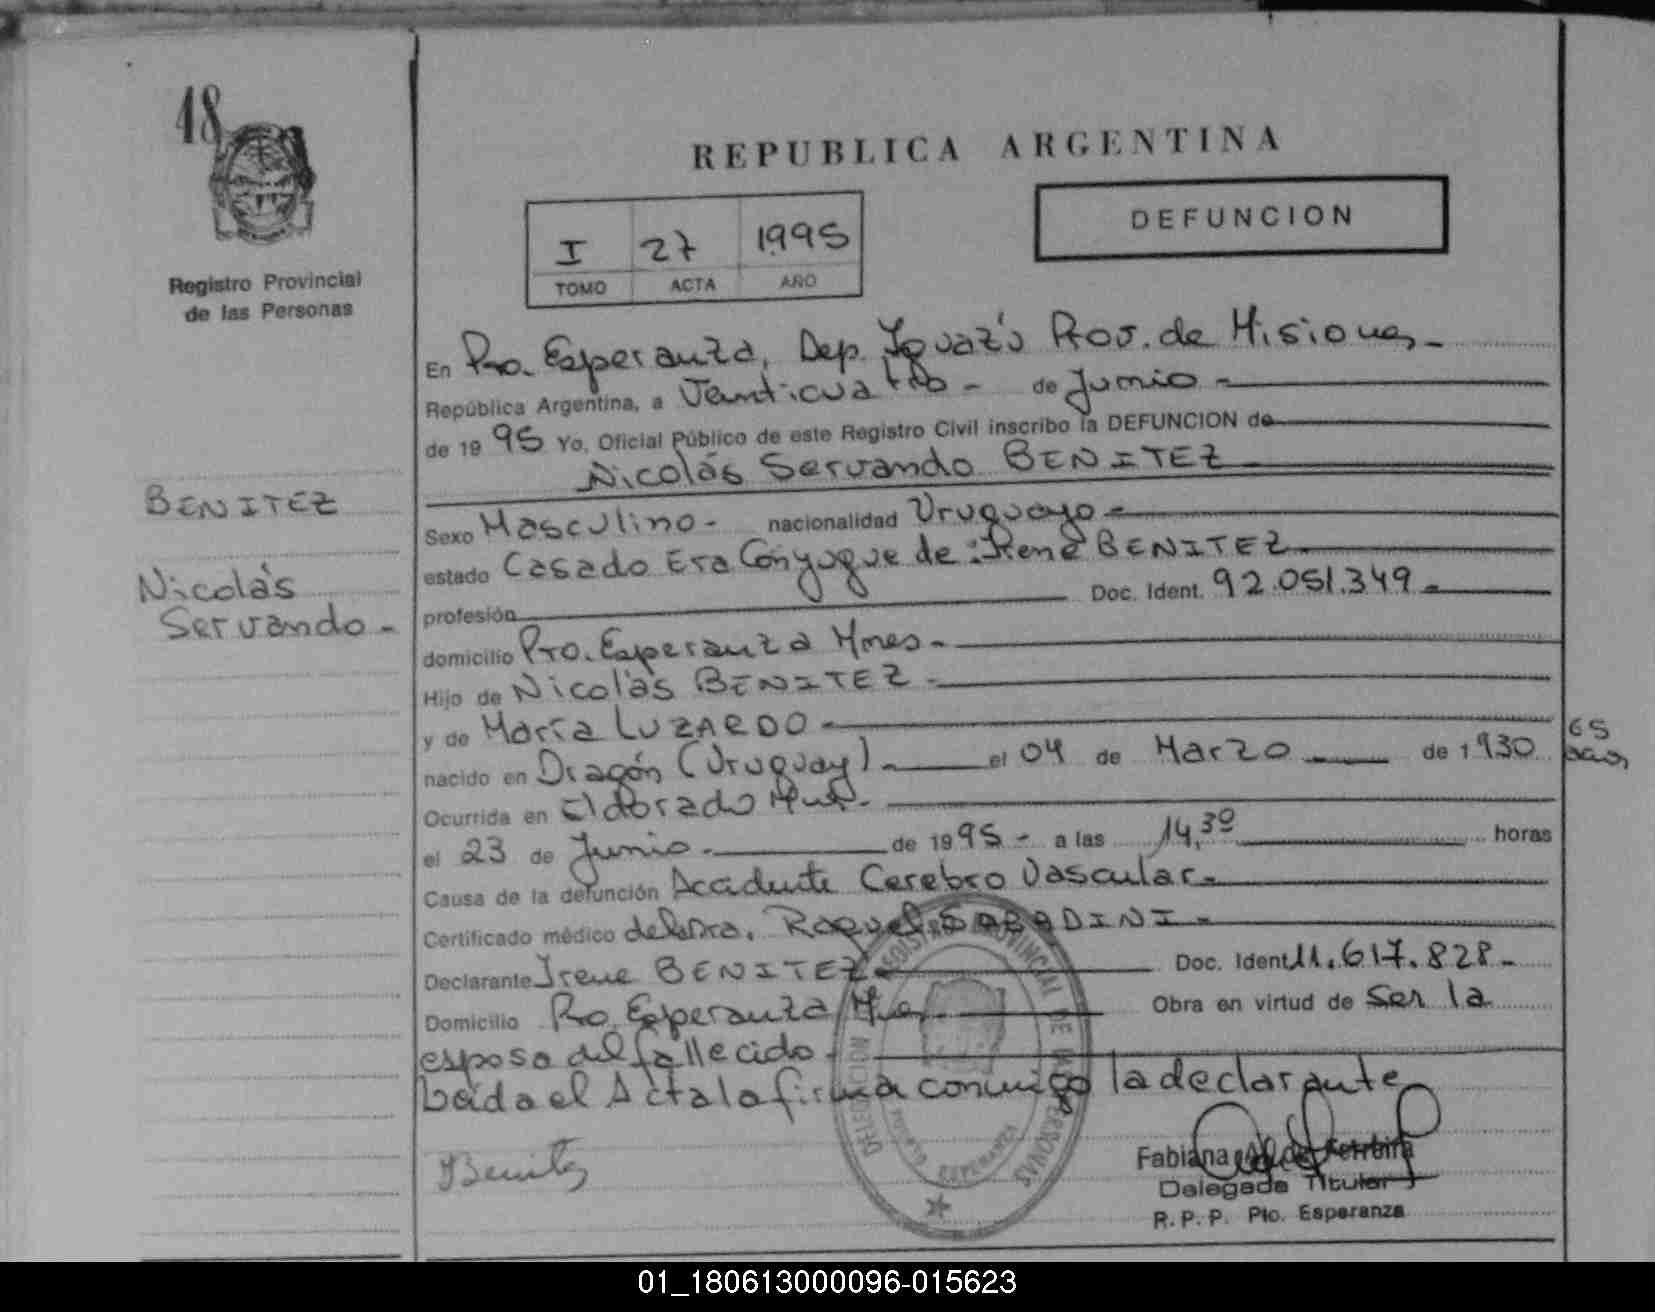 18
REPUBLICA ARGENTINA
I 27 1995
TOMO ACTA AÑO
DEFUNCION
Registro Provincial
de las Personas
En Pto. Esperanza, Dep. Iguazú Prov. de Misiones -
República Argentina, a Veinticuatro - de Junio -
de 1995 Yo, Oficial Público de este Registro Civil inscribo la DEFUNCION de
Nicolás Servando BENITEZ
BENITEZ
Nicolás
Servando -
Sexo Masculino - nacionalidad Uruguayo -
estado Casado Era Cónyugue de: Irene BENITEZ
profesión Doc. Ident. 92.051.349 -
domicilio Pto. Esperanza Mnes -
Hijo de Nicolás BENITEZ -
y de María LUZARDO -
nacido en Dragón (Uruguay) - el 04 de Marzo de 1930 65 años
Ocurrida en Eldorado Mnes. -
el 23 de Junio - de 1995 - a las 14,30 horas
Causa de la defunción Accidente Cerebro Vascular -
Certificado médico de la Dra. Raquel SABADINI -
Declarante Irene BENITEZ - Doc. Ident. 11.617.828 -
Domicilio Pto. Esperanza Mnes. Obra en virtud de Ser la
esposa del fallecido -
Leída el Acta la firma conmigo la declarante
IBenitez
REGISTRO PROVINCIAL DE LAS PERSONAS
DELEGACION
PUERTO ESPERANZA
Fabiana de Ferreira
Delegada Titular
R. P. P. Pto. Esperanza
01_180613000096-015623